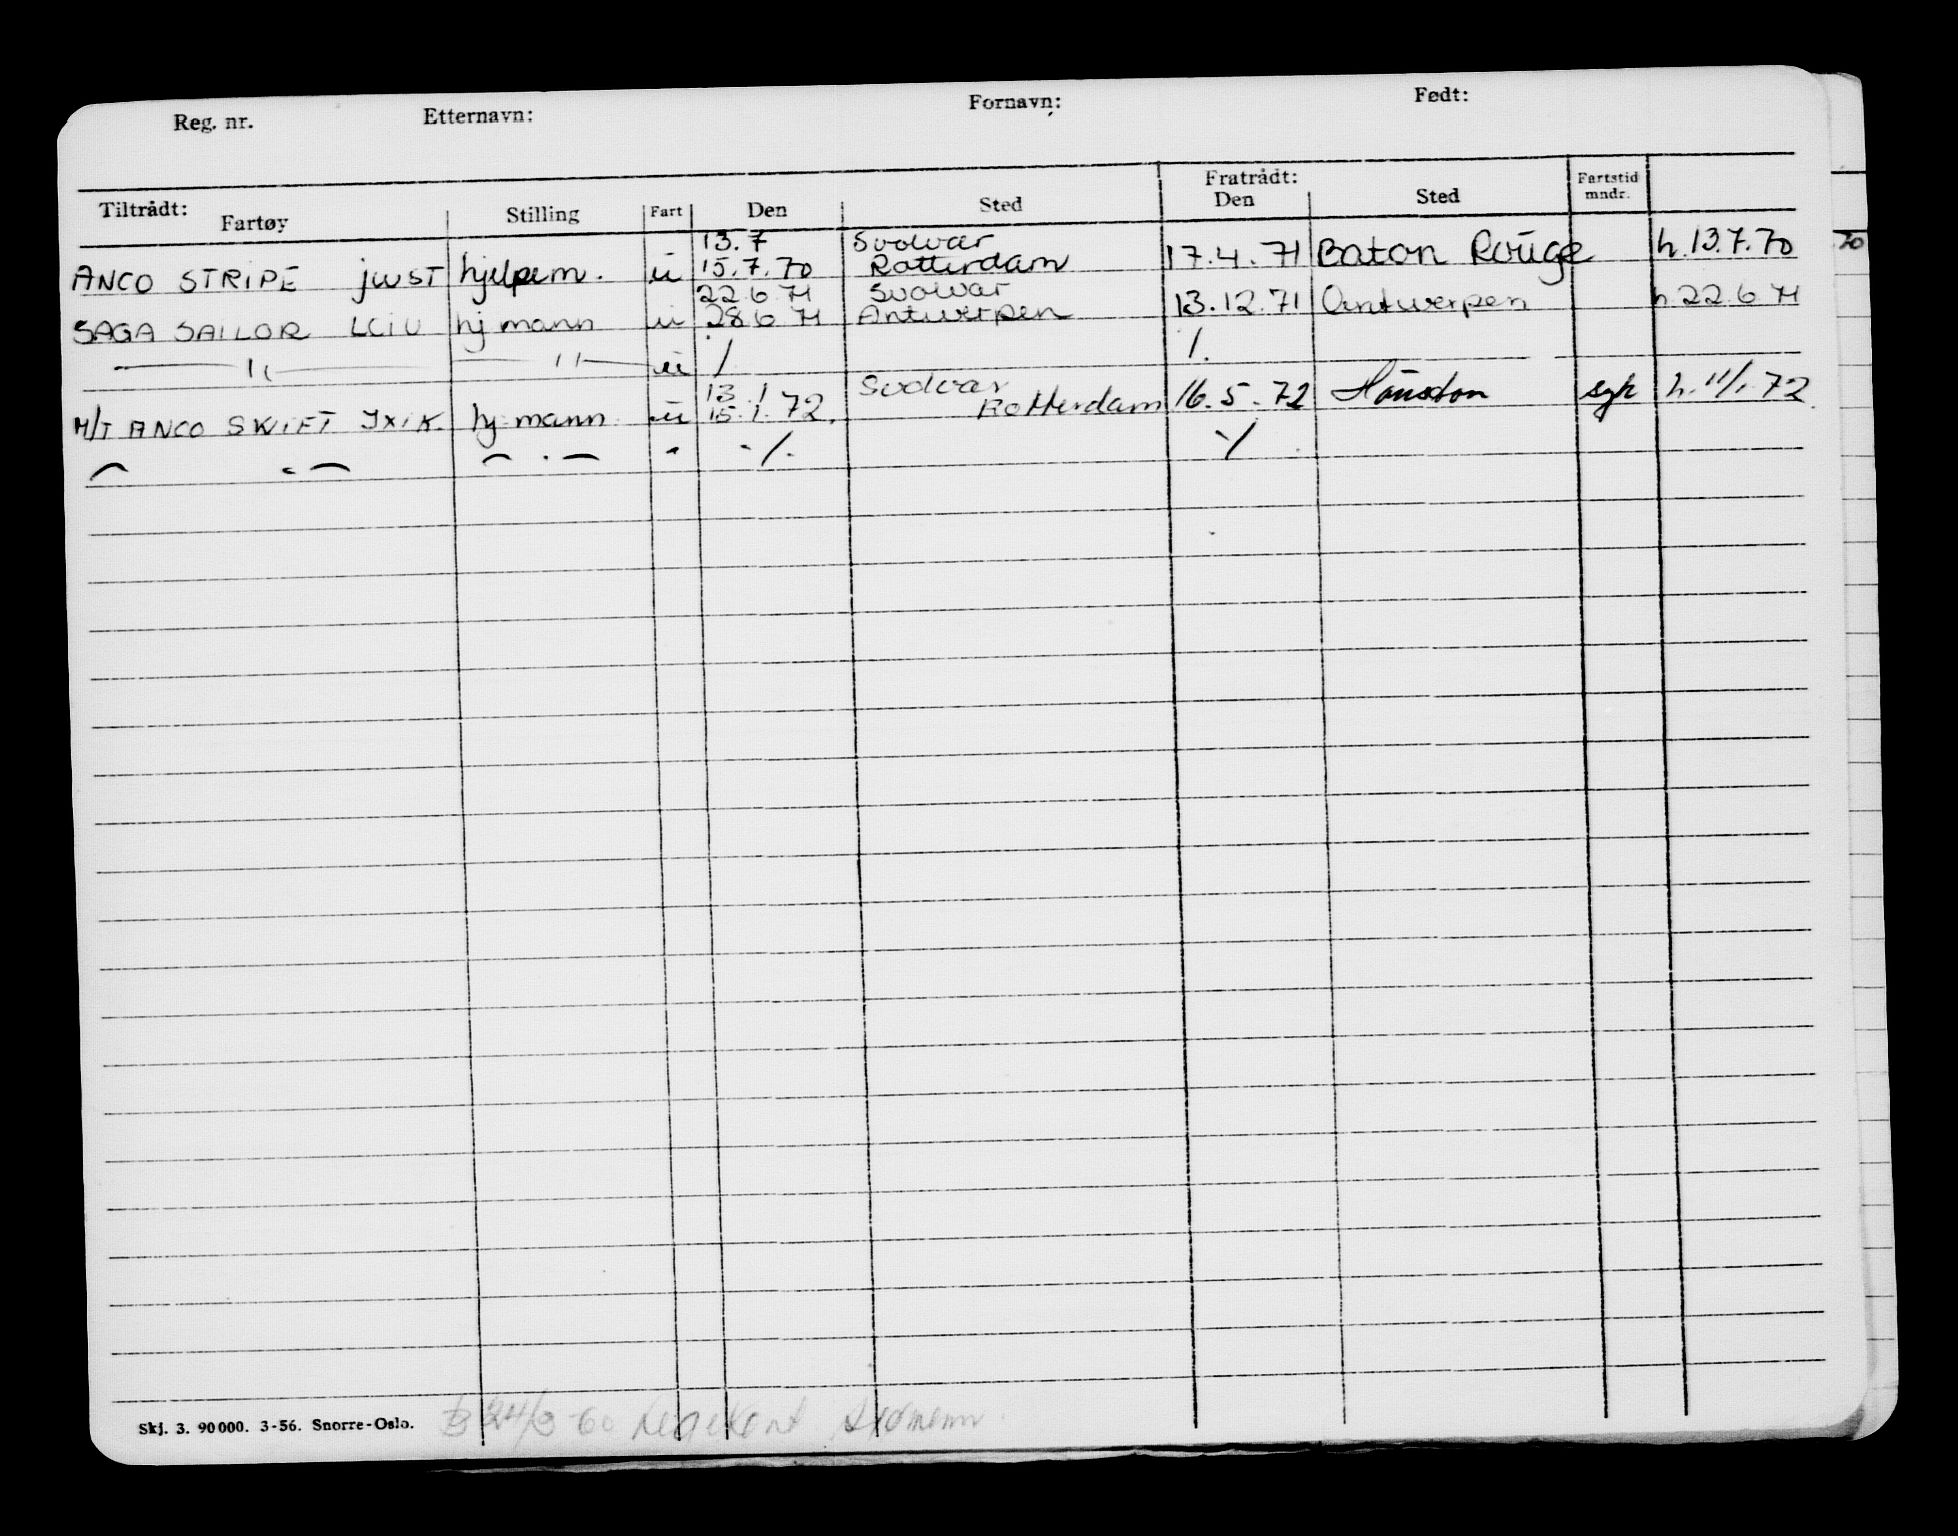 Reg. nr. Etternavn: Fornavn: Født:
Tiltrådt: Fratrådt:
Fartøy Stilling Fart Den Sted Den Sted Fartstid mndr.
13.7 Svolvær
ANCO STRIPE JWST hjelpem. u 15.7.70 Rotterdam 17.4.71 Baton Rouge h.13.7.70
22 6 71 Svolvær
SAGA SAILOR LCIU hj mann u 28 6 71 Antwerpen 13.12.71 Antwerpen h 22.6 71
— " — — " — u / /.
13 1 Svolvær
M/T ANCO SWIFT JXIK hj. mann u 15.1.72. Rotterdam 16.5.72 Houston syk h. 11/1 72
— " — — " — " ·/. ·/.
Skj. 3. 90 000. 3-56. Snorre-Oslo. 24/3-60 sjømenn